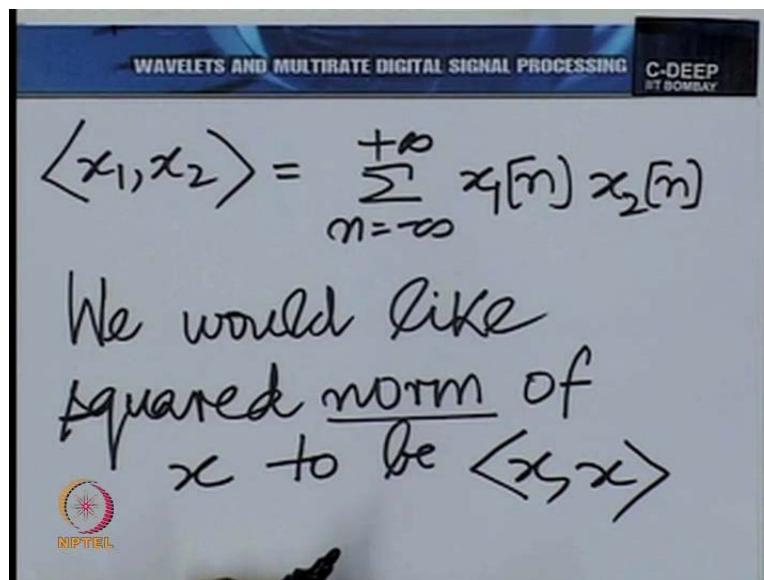 WAVELETS AND MULTIRATE DIGITAL SIGNAL PROCESSING
C-DEEP
IIT BOMBAY
⟨x₁, x₂⟩ = +∞ Σ n=-∞ x₁[n] x₂[n]
We would like
squared norm of
x to be ⟨x, x⟩
NPTEL